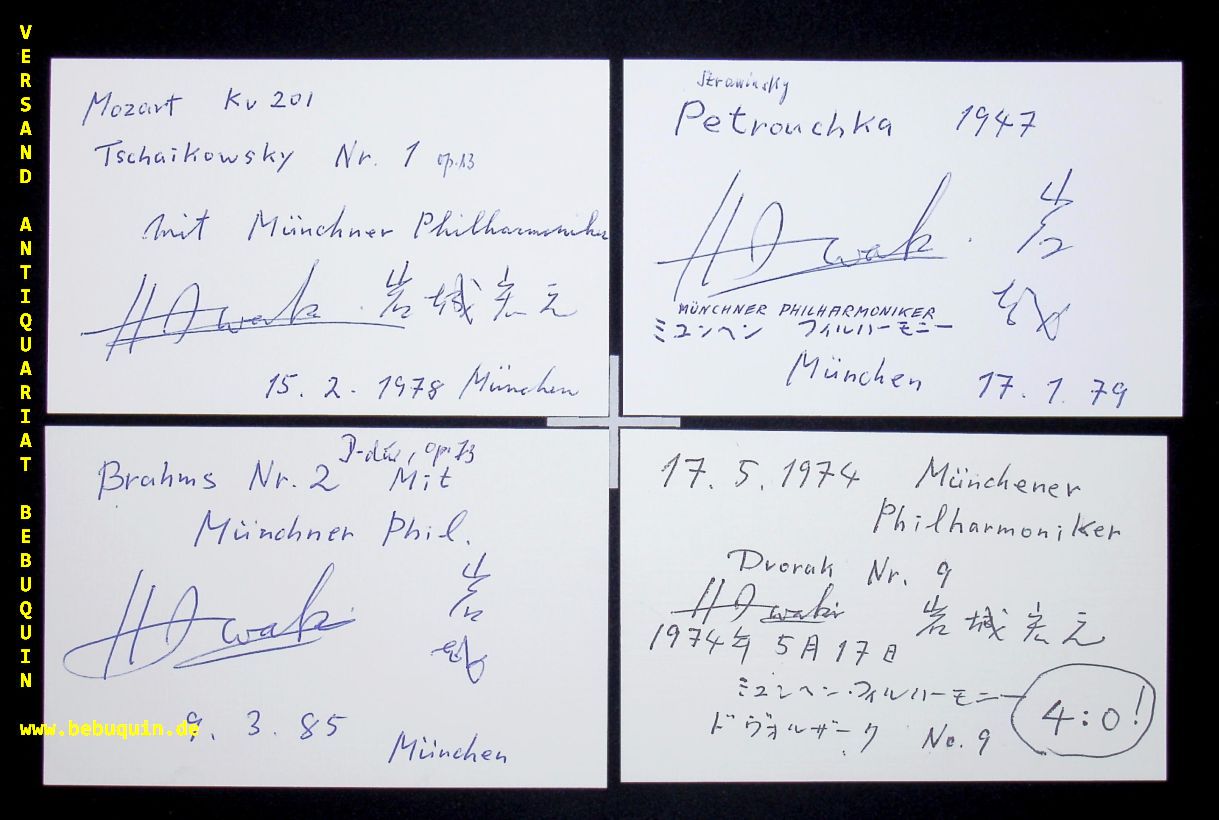 VERSAND ANTIQUARIAT BEBUQUIN
www.bebuquin.de
Mozart KV 201
Tschaikowsky Nr. 1 op.13
mit Münchner Philharmoniker
H Iwaki 岩城宏之
15. 2. 1978 München
Strawinsky
Petrouchka 1947
H Iwaki 岩
MÜNCHNER PHILHARMONIKER
ミュンヘン フィルハーモニー
München 17. 1. 79
D-dur, op.73
Brahms Nr. 2 Mit
Münchner Phil.
H Iwaki 岩
9. 3. 85
München
17. 5. 1974 Münchener
Philharmoniker
Dvorak Nr. 9
H Iwaki 岩城宏之
1974年 5月17日
ミュンヘン・フィルハーモニー
ドヴォルザーク No. 9
4:0!